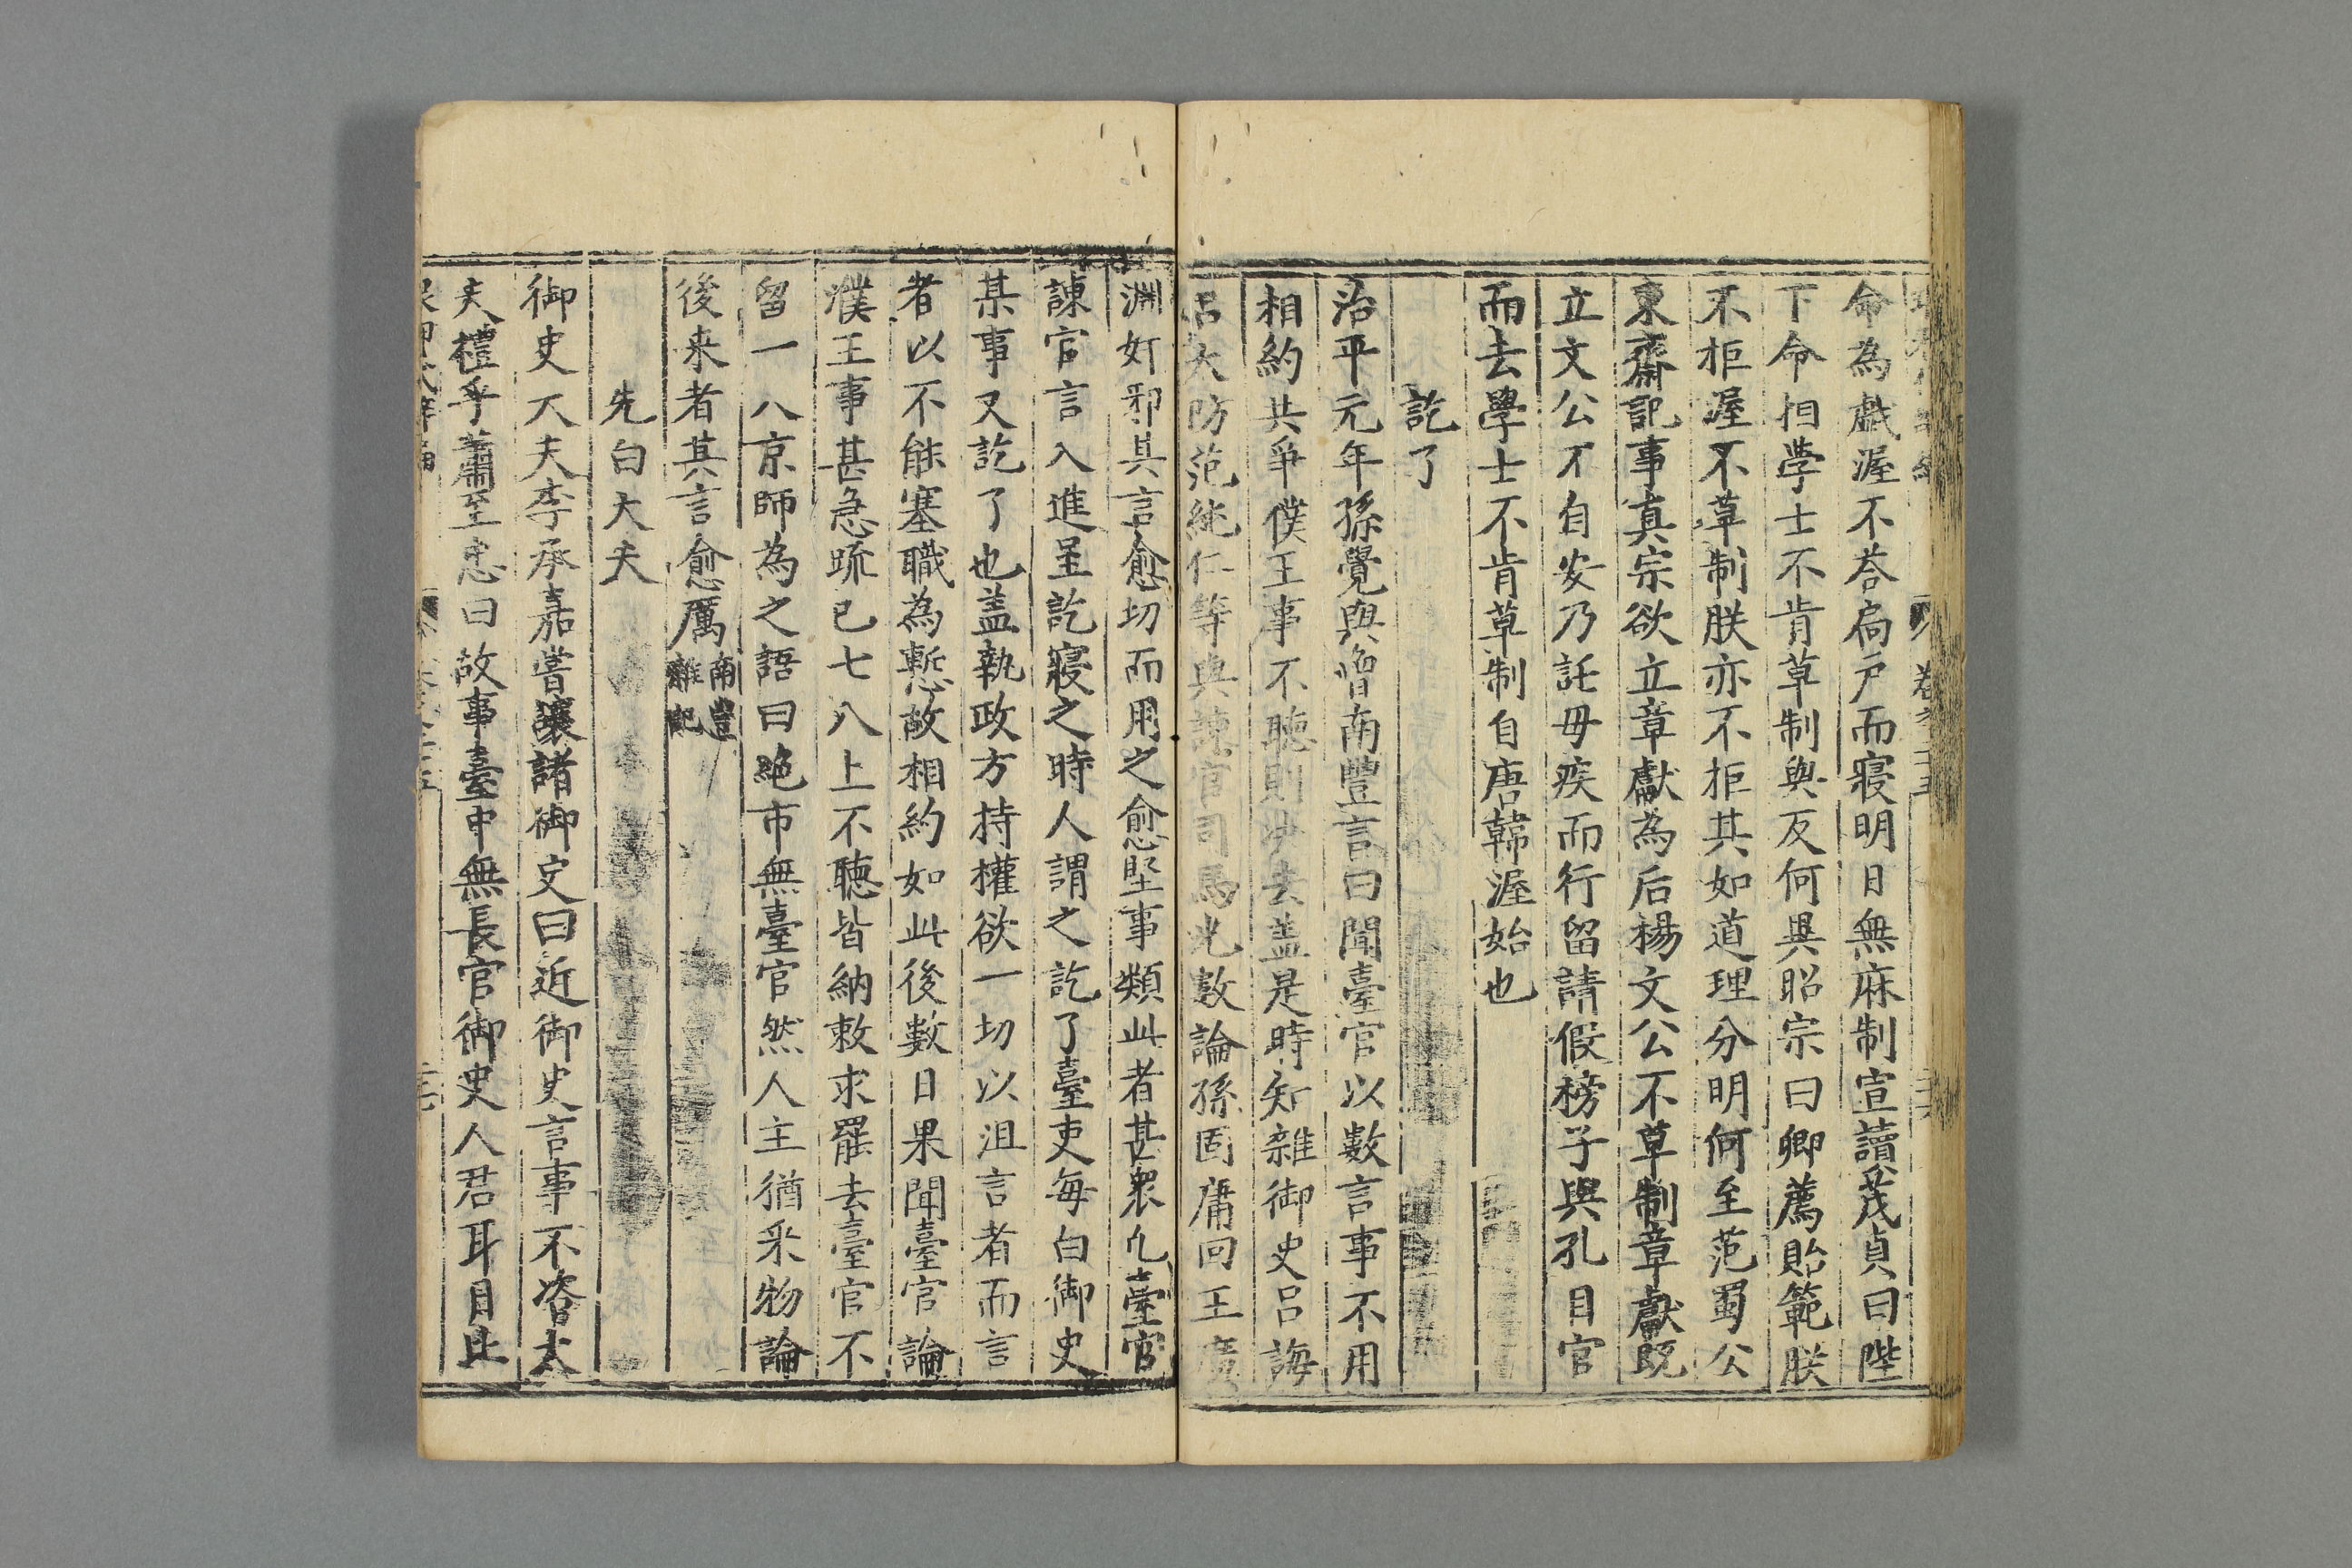 命為戱渥不荅扃戶而寢明日無麻制宣讀茂貞曰陛
下命相學士不肯草制與反何異昭宗曰卿薦貽範朕
不拒渥不草制朕亦不拒其如道理分明何至范蜀公
東齋記事真宗欲立章獻為后楊文公不草制章獻既
立文公不自安乃託母疾而行留請假榜子與孔目官
而去學士不肯草制自唐韓渥始也
訖了
治平元年孫覺與曾南豐言曰聞臺官以數言事不用
相約共爭僕王事不聽則決去盖是時知雜御史呂誨
呂大防范純仁等與諫官司馬光數論孫固庸回王廣
淵奸邪其言愈切而用之愈堅事類此者甚衆凢臺官
諫官言入進呈訖寢之時人謂之訖了臺吏每白御史
某事又訖了也盖執政方持權欲一切以沮言者而言
者以不能塞職為慙故相約如此後數日果聞臺官論
濮王事甚急䟽已七八上不聽皆納敕求罷去臺官不
留一八京師為之語曰絕市無臺官然人主猶采物論
後来者其言愈厲南豐雜記
先白大夫
御史大夫李承嘉嘗讓諸御史曰近御史言事不咨大
夫禮乎蕭至忠曰故事臺中無長官御史人君耳目比